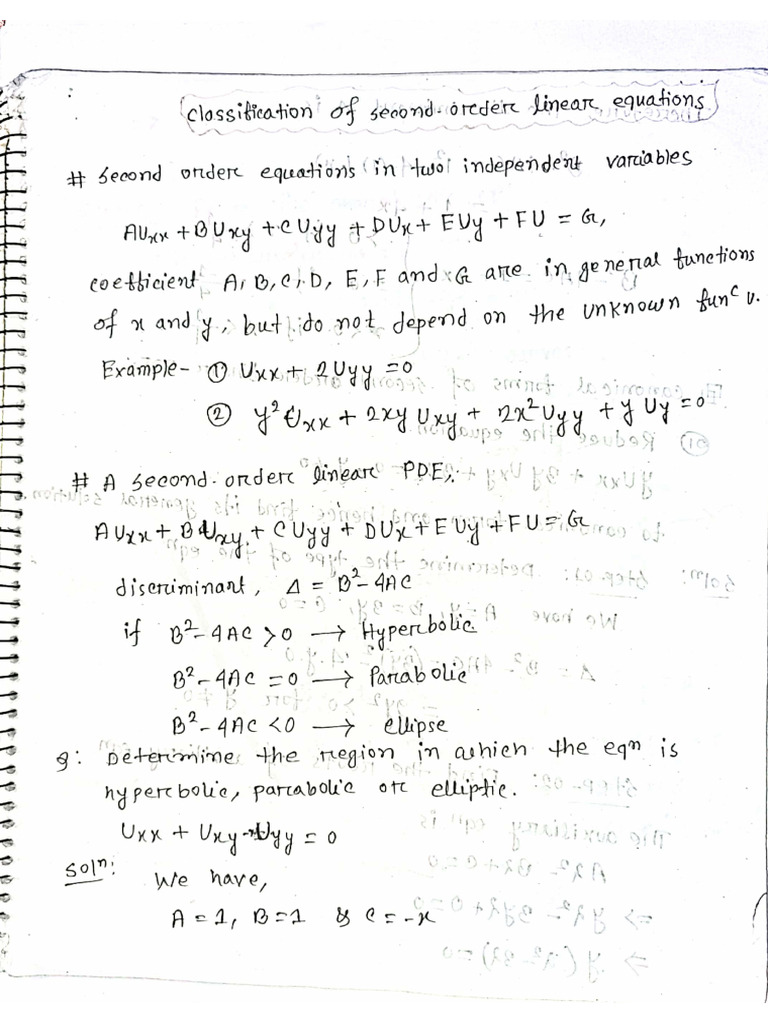 Classification of second order linear equations
# Second order equations in two independent variables
AUxx + BUxy + CUyy + DUx + EUy + FU = G,
coefficient A, B, C, D, E, F and G are in general functions
of x and y, but do not depend on the unknown funᶜ u.
Example - ① Uxx + 2Uyy = 0
② y² Uxx + 2xy Uxy + 2x² Uyy + y Uy = 0
# A second order linear PDE,
AUxx + BUxy + CUyy + DUx + EUy + FU = G
discriminant, Δ = B² - 4AC
if B² - 4AC > 0 → Hyperbolic
B² - 4AC = 0 → Parabolic
B² - 4AC < 0 → ellipse
Q: Determine the region in which the eqn is
hyperbolic, parabolic or elliptic.
Uxx + Uxy - xUyy = 0
Solⁿ:
We have,
A = 1, B = 1 & C = -x